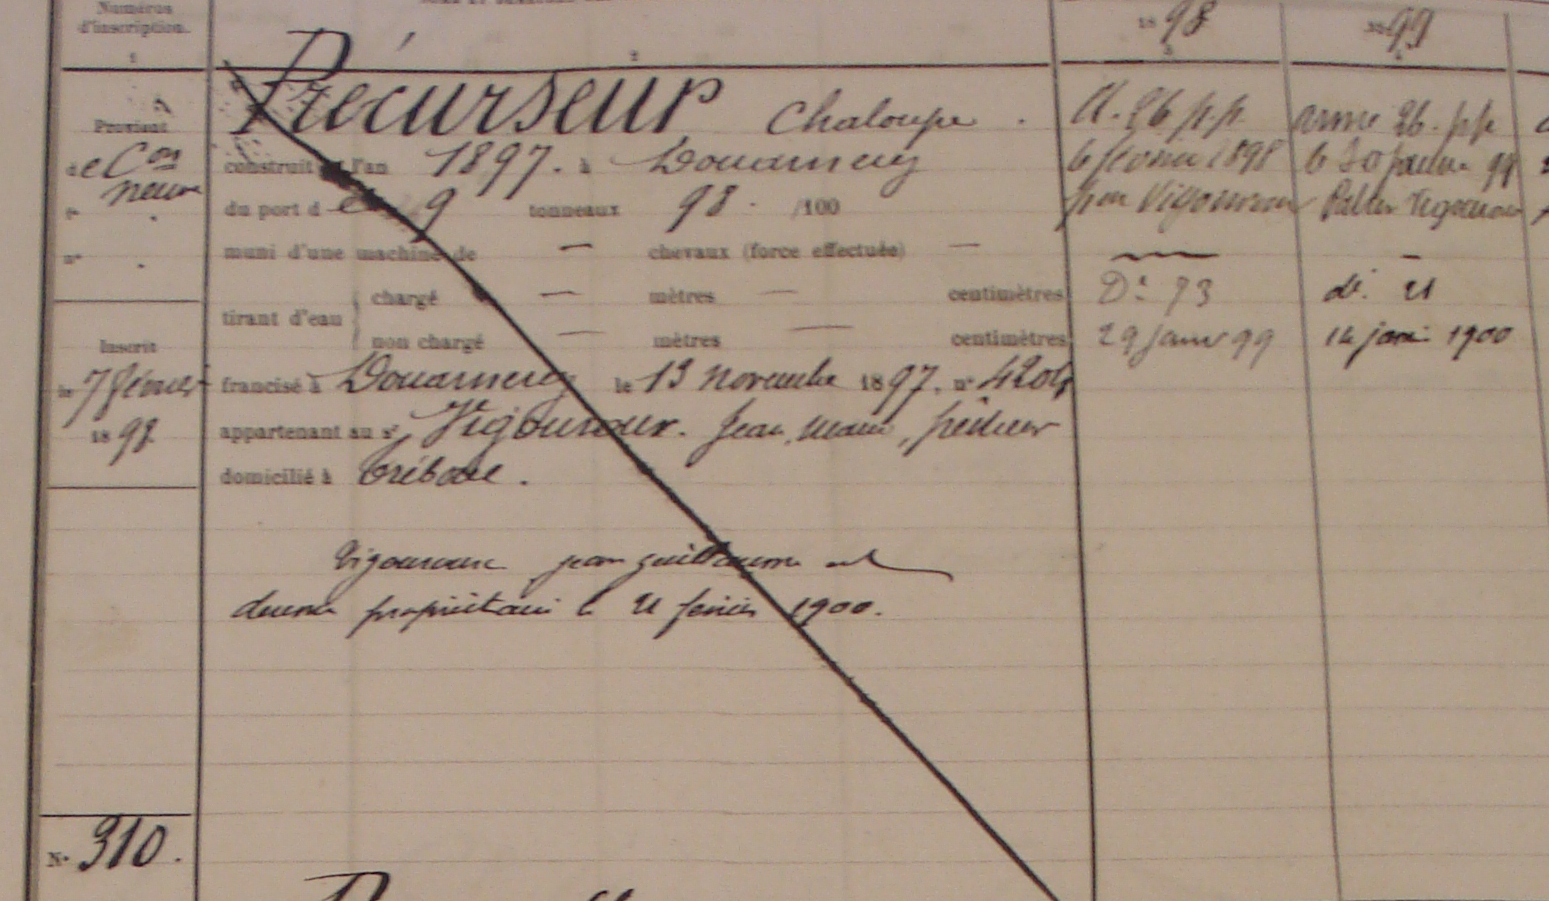 Numéros
d'inscription.
1
2
1898
3
1899
4
Provient
de Con
neuve
fo .
n° .
Inscrit
le 7 février
1898
N° 310.
Précurseur Chaloupe .
construit l'an 1897. à Douarnenez
du port de 9 tonneaux 98 . /100
muni d'une machine de — chevaux (force effectuée) —
tirant d'eau
chargé — mètres — centimètres
non chargé — mètres — centimètres
francisé à Douarnenez le 13 novembre 1897. n° 4204
appartenant au sr Vigouroux. Jean marie, pêcheur
domicilié à Tréboul .
Vigouroux jean guillaume est
devenu propriétaire le 21 février 1900.
A. 26 p.p.
6 février 1898
pon Vigouroux
Dé. 73
29 janv 99
armé 26. pp
le 30 janvier 99
Patron Vigouroux
dé. 21
14 janv. 1900